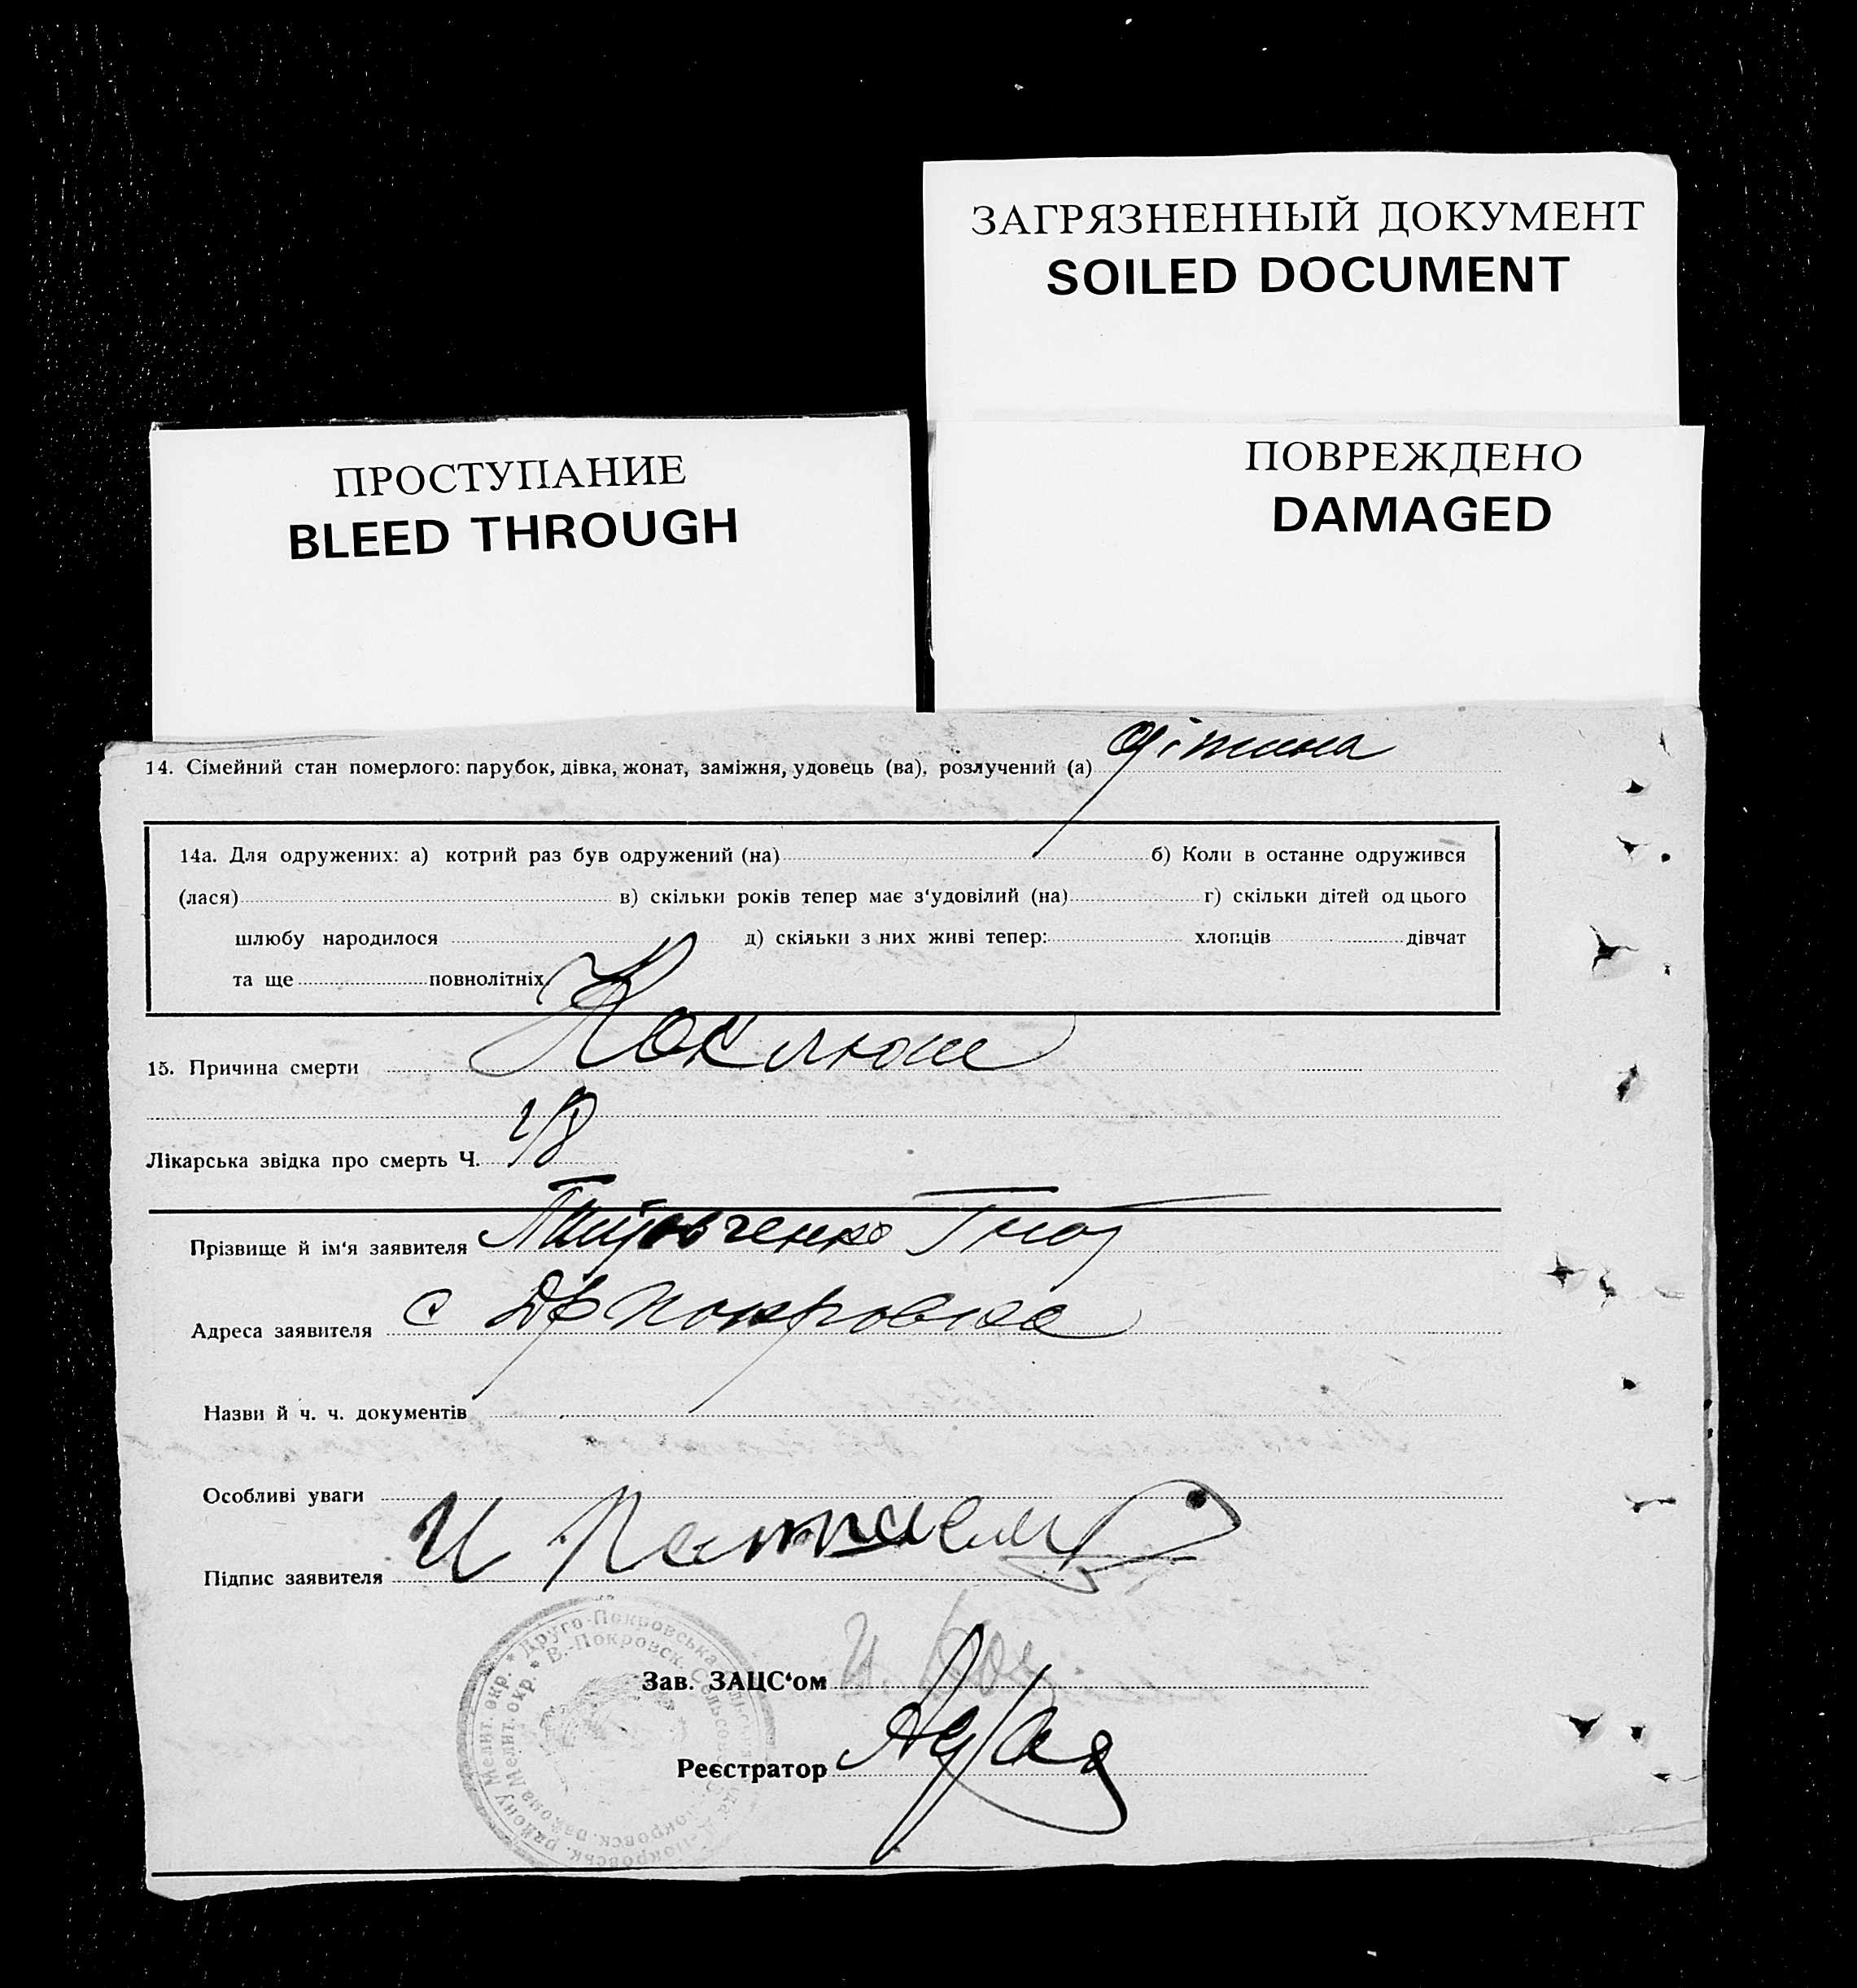 ЗАГРЯЗНЕННЫЙ ДОКУМЕНТ
SOILED DOCUMENT
ПРОСТУПАНИЕ
BLEED THROUGH
ПОВРЕЖДЕНО
DAMAGED
14. Сімейний стан померлого: парубок, дівка, жонат, заміжня, удовець (ва), розлучений (а) дітина
14а. Для одружених: а) котрий раз був одружений (на) б) Коли в останне одружився
(лася) в) скільки років тепер має з‘удовілий (на) г) скільки дітей од цього
шлюбу народилося д) скільки з них живі тепер: хлопців дівчат
та ще повнолітніх
15. Причина смерти Коклюш
Лікарська звідка про смерть Ч.
Прізвище й ім‘я заявителя
Адреса заявителя с Др Покровка
Назви й ч. ч. документів
Особливі уваги
Підпис заявителя
Друго-Покровська
В.-Покровск. Сельсов
Мелит. окр.
Зав. ЗАЦС‘ом
Реєстратор